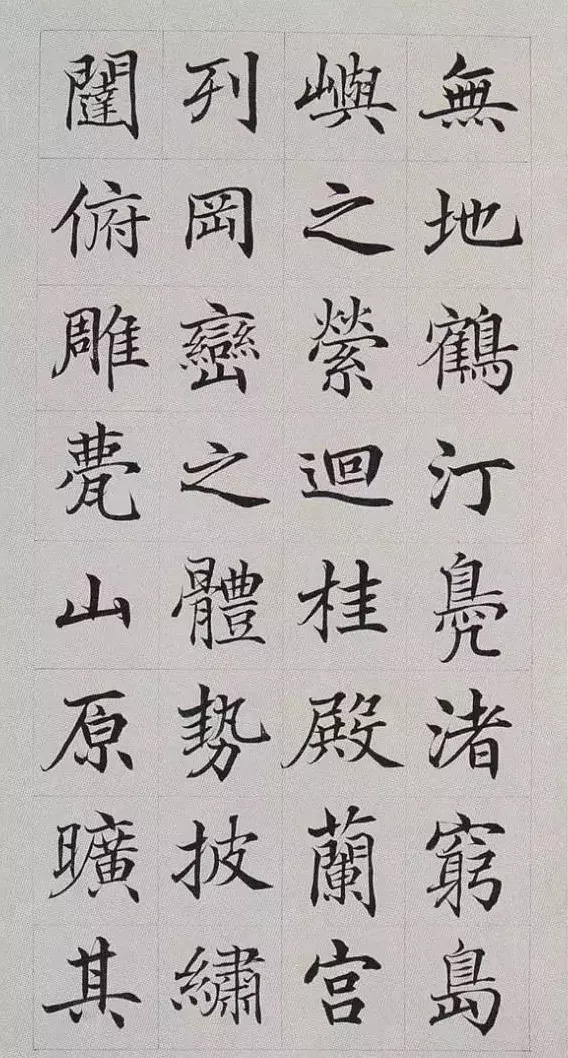 無地鶴汀鳧渚窮島
嶼之縈迴桂殿蘭宮
列岡巒之體勢披繡
闥俯雕甍山原曠其